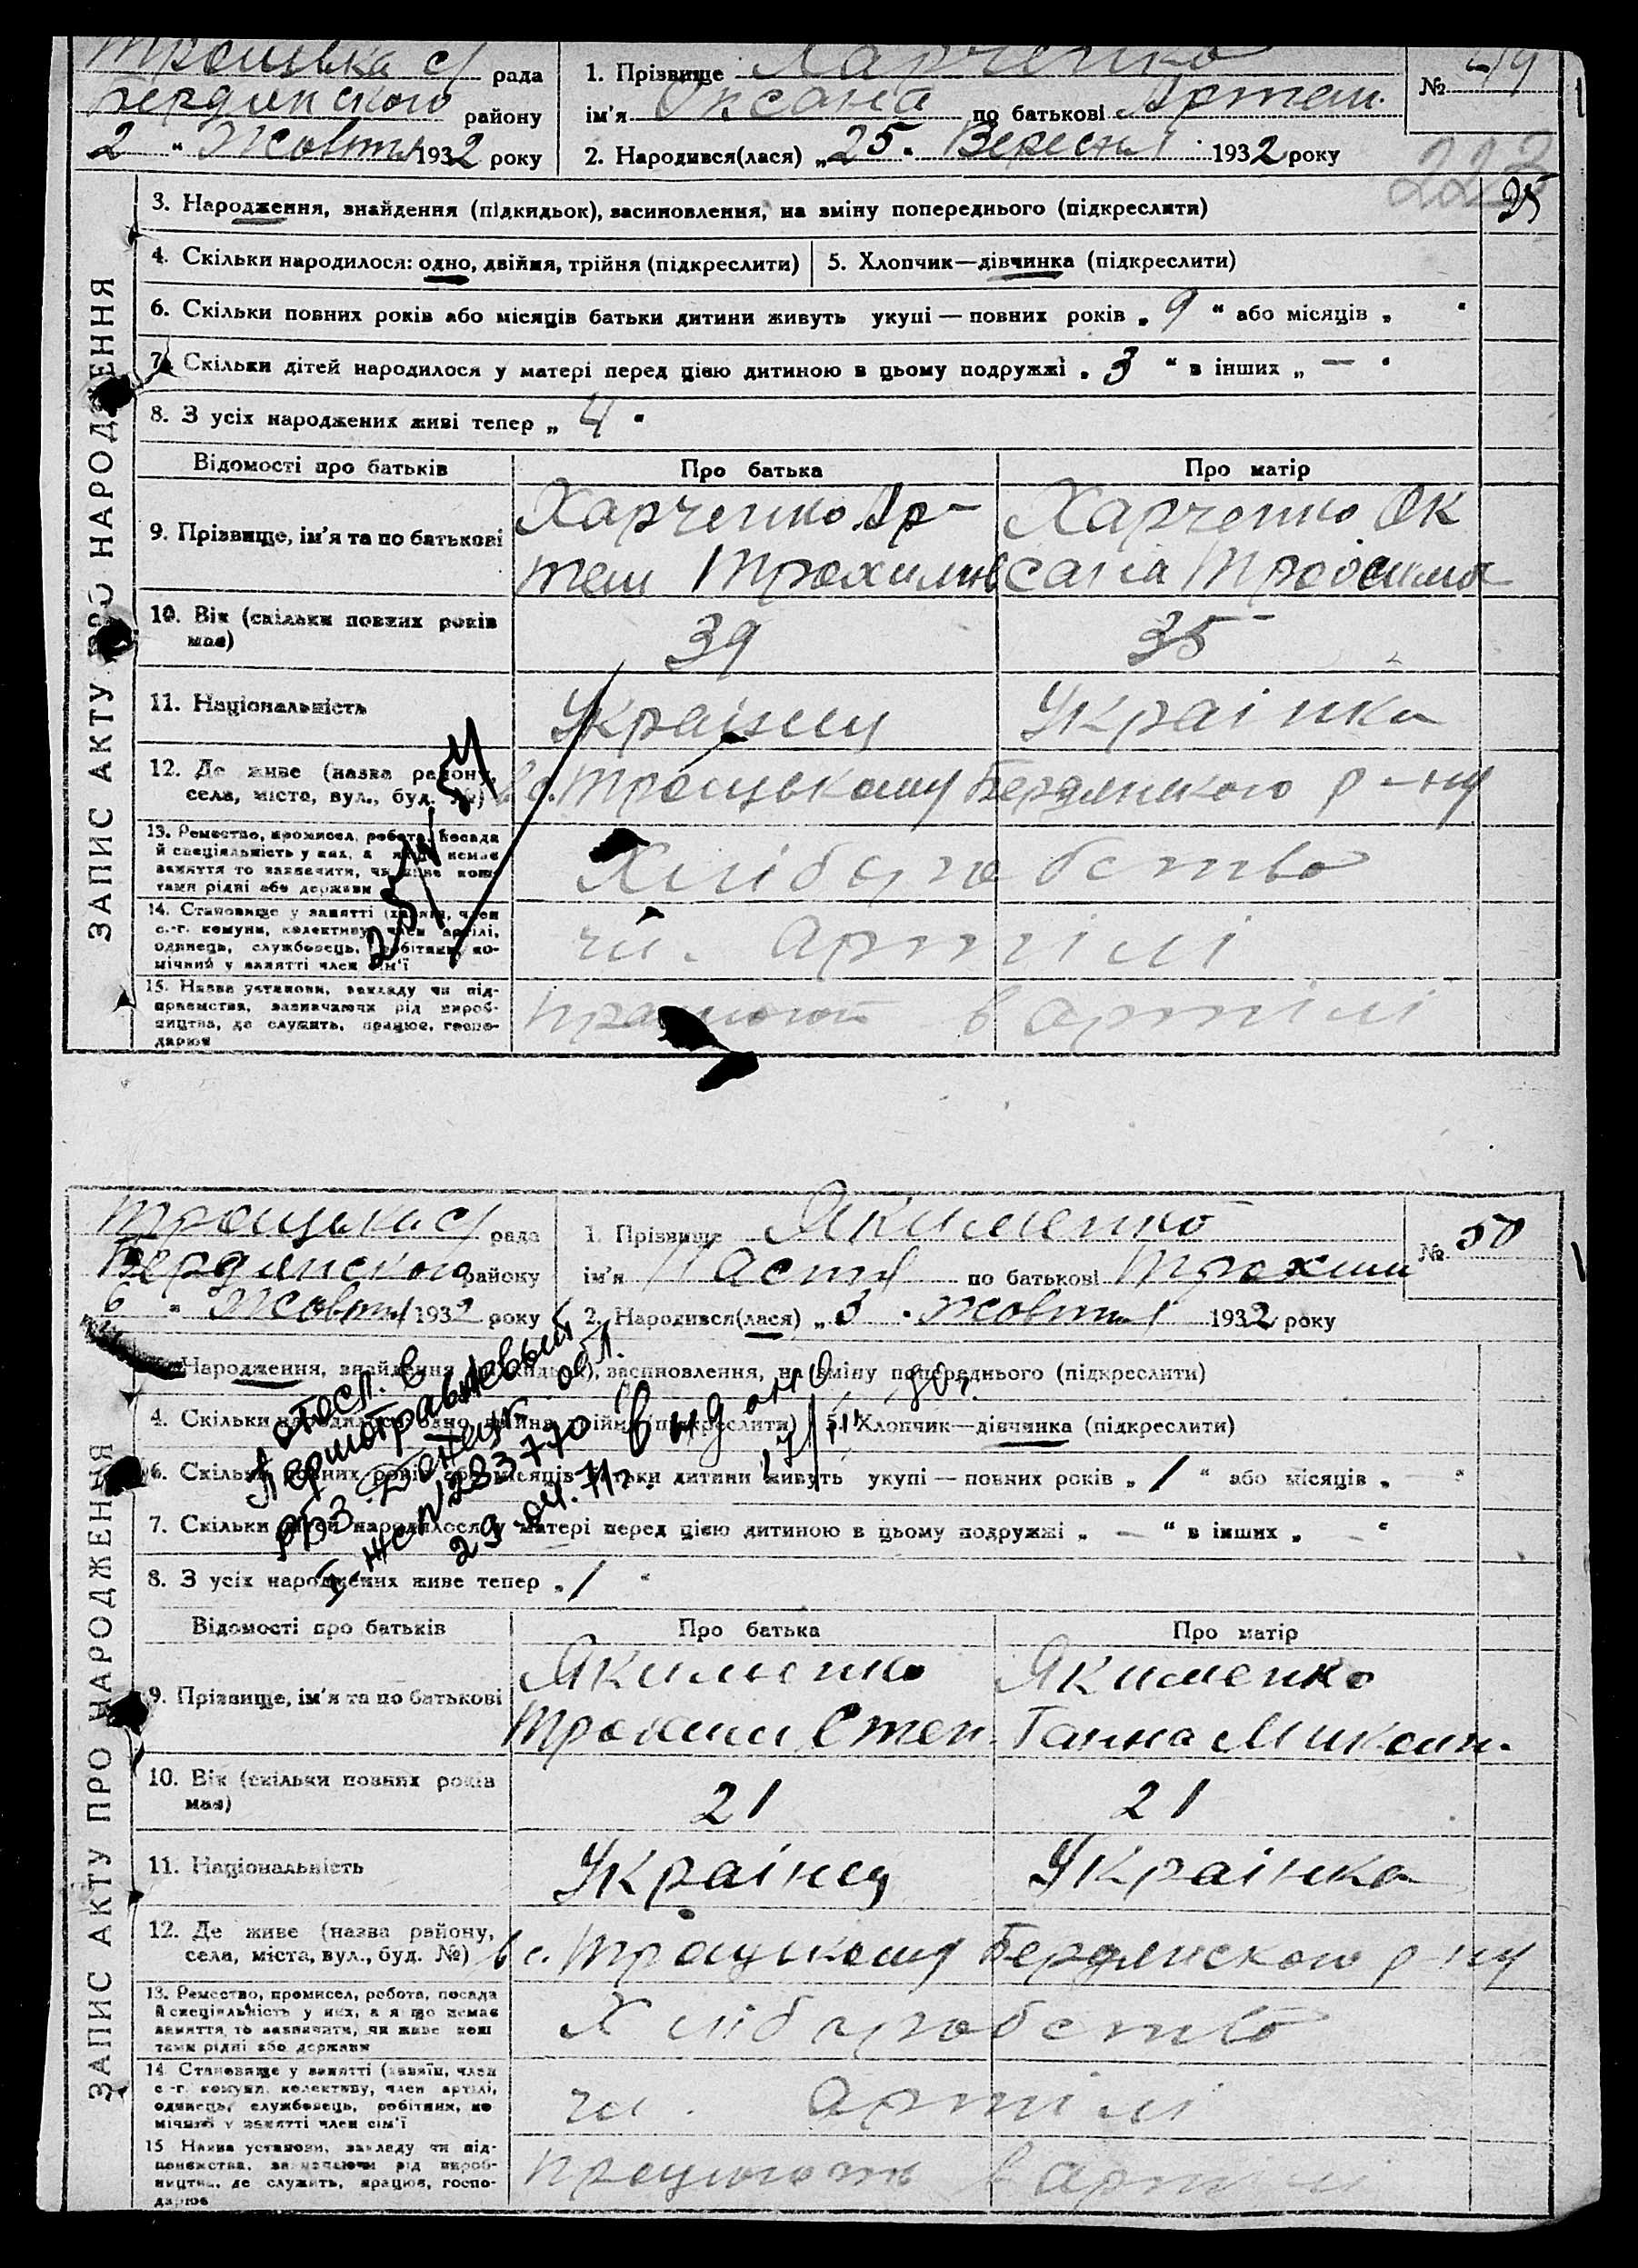 Троцька с/ рада
Бердянского району
2 " Жовтня 1932 року
1. Прізвище Харченко
ім'я Оксана по батькові Артем.
2. Народився(лася) „25" Вересня 1932 року
№ 49
223
25
ЗАПИС АКТУ ПРО НАРОДЖЕННЯ
3. Народження, знайдення (підкидьок), засиновлення, на зміну попереднього (підкреслити)
4. Скільки народилося: одно, двійня, трійня (підкреслити)
5. Хлопчик—дівчинка (підкреслити)
6. Скільки повних років або місяців батьки дитини живуть укупі — повних років „ 9 " або місяців „ "
7. Скільки дітей народилося у матері перед цією дитиною в цьому подружжі „ 3 " в інших „ — "
8. З усіх народжених живі тепер „ 4 "
Відомості про батьків
Про батька
Про матір
9. Прізвище, ім'я та по батькові
Харченко Ар-
тем
Харченко Ок
сана
10. Вік (скільки повних років
має)
39
35
11. Національність
Українец
Українка
12. Де живе (назва району,
села, міста, вул., буд. №)
в с. Троцькому Бердянского р-ну
13. Ремество, промисел, робота, посада
й спеціяльність у них, а якщо немає
заняття то зазначити, чи живе кош-
тами рідні або держави
Хліборобство
14. Становище у занятті (хазяїн, член
с.-г. комуни, колективу, член артілі,
одинець, службовець, робітник, по-
мічний у занятті член сім'ї
чл. артілі
15. Назва установи, закладу чи під-
приємства, зазначаючи рід вироб-
ництва, де служить, працює, госпо-
дарює
працюют в артілі
Троцька с/ рада
Бердянского району
6 " Жовтня 1932 року
1. Прізвище Якименко
ім'я Настя по батькові Трохим
2. Народився(лася) „ 3 " жовтня 1932 року
№ 50
ЗАПИС АКТУ ПРО НАРОДЖЕННЯ
Народження, знайдення (підкидьок), засиновлення, на зміну попереднього (підкреслити)
4. Скільки народилося: одно, двійня, трійня (підкреслити)
5. Хлопчик—дівчинка (підкреслити)
6. Скільки повних років або місяців батьки дитини живуть укупі — повних років „ 1 " або місяців „ — "
7. Скільки дітей народилося у матері перед цією дитиною в цьому подружжі „ — " в інших „ — "
8. З усіх народжених живе тепер „ 1 "
Донецк обл.
29.04.71г.
Відомості про батьків
Про батька
Про матір
9. Прізвище, ім'я та по батькові
Якименко
Трохим Степ.
Якименко
Ганна Микол.
10. Вік (скільки повних років
має)
21
21
11. Національність
Українец
Українка
12. Де живе (назва району,
села, міста, вул., буд. №)
в с. Троцькому Бердянского р-ну
13. Ремество, промисел, робота, посада
й спеціяльність у них, а якщо немає
заняття то зазначити, чи живе кош
тами рідні або держави
Хліборобство
14. Становище у занятті (хазяїн, член
с.-г. комуни, колективу, член артілі,
одинець, службовець, робітник, по
мічний у занятті член сім'ї
чл. артілі
15. Назва установи, закладу чи під-
приємства, зазначаючи рід вироб-
ництва, де служить, працює, госпо-
дарює
працюють в артілі